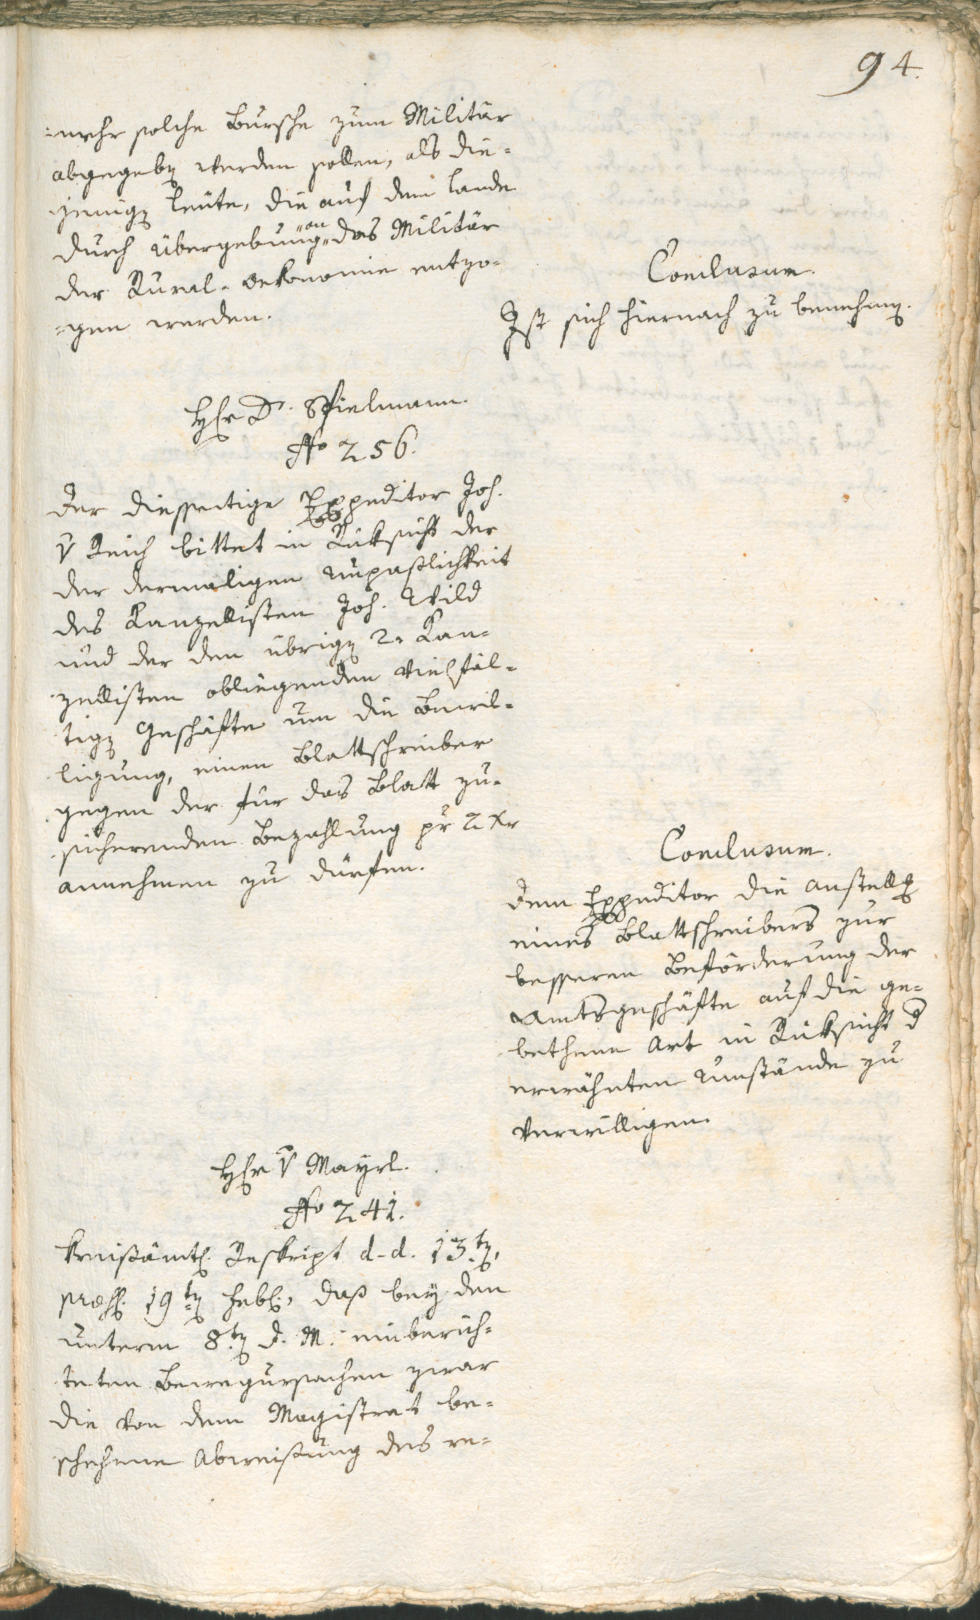 94.
=mehr solche Bursche zum Militär
abgegeben werden sollen, als die=
jenigen Leute, die auf dem Lande
durch Übergebung an das Militär
der Rural-Oekonomie entzo=
=gen werden.
Conclusum.
Ist sich hiernach zu benehmen.
Herr Dr. Spielmann.
No 256.
Der diesseitige Expeditor Joh.
v Reich bittet in Rücksicht der
der dermaligen Unpaßlichkeit
des Kanzellisten Joh. Wild
und der den übrigen 2. Kan=
zellisten obliegenden vielfäl=
tigen Geschäfte um die Bewil=
ligung, einen Blattschreiber
gegen der für das Blatt zu=
sichernden Bezahlung pr 2 xr
annehmen zu dürfen.
Conclusum.
Dem Expeditor die Anstellung
eines Blattschreibers zur
besseren Beförderung der
Amtsgeschäfte auf die ge=
bethene Art in Rücksicht d
erwähnten Umstände zu
verwilligen.
Herr v Mayrl.
No 241.
Kreisämtl. Reskript d-d. 13ten,
praes. 19ten Febr., daß bey den
unterm 8ten d. M. einberich=
teten Bewegursachen zwar
die von dem Magistrat be=
schehene Abweisung des re=